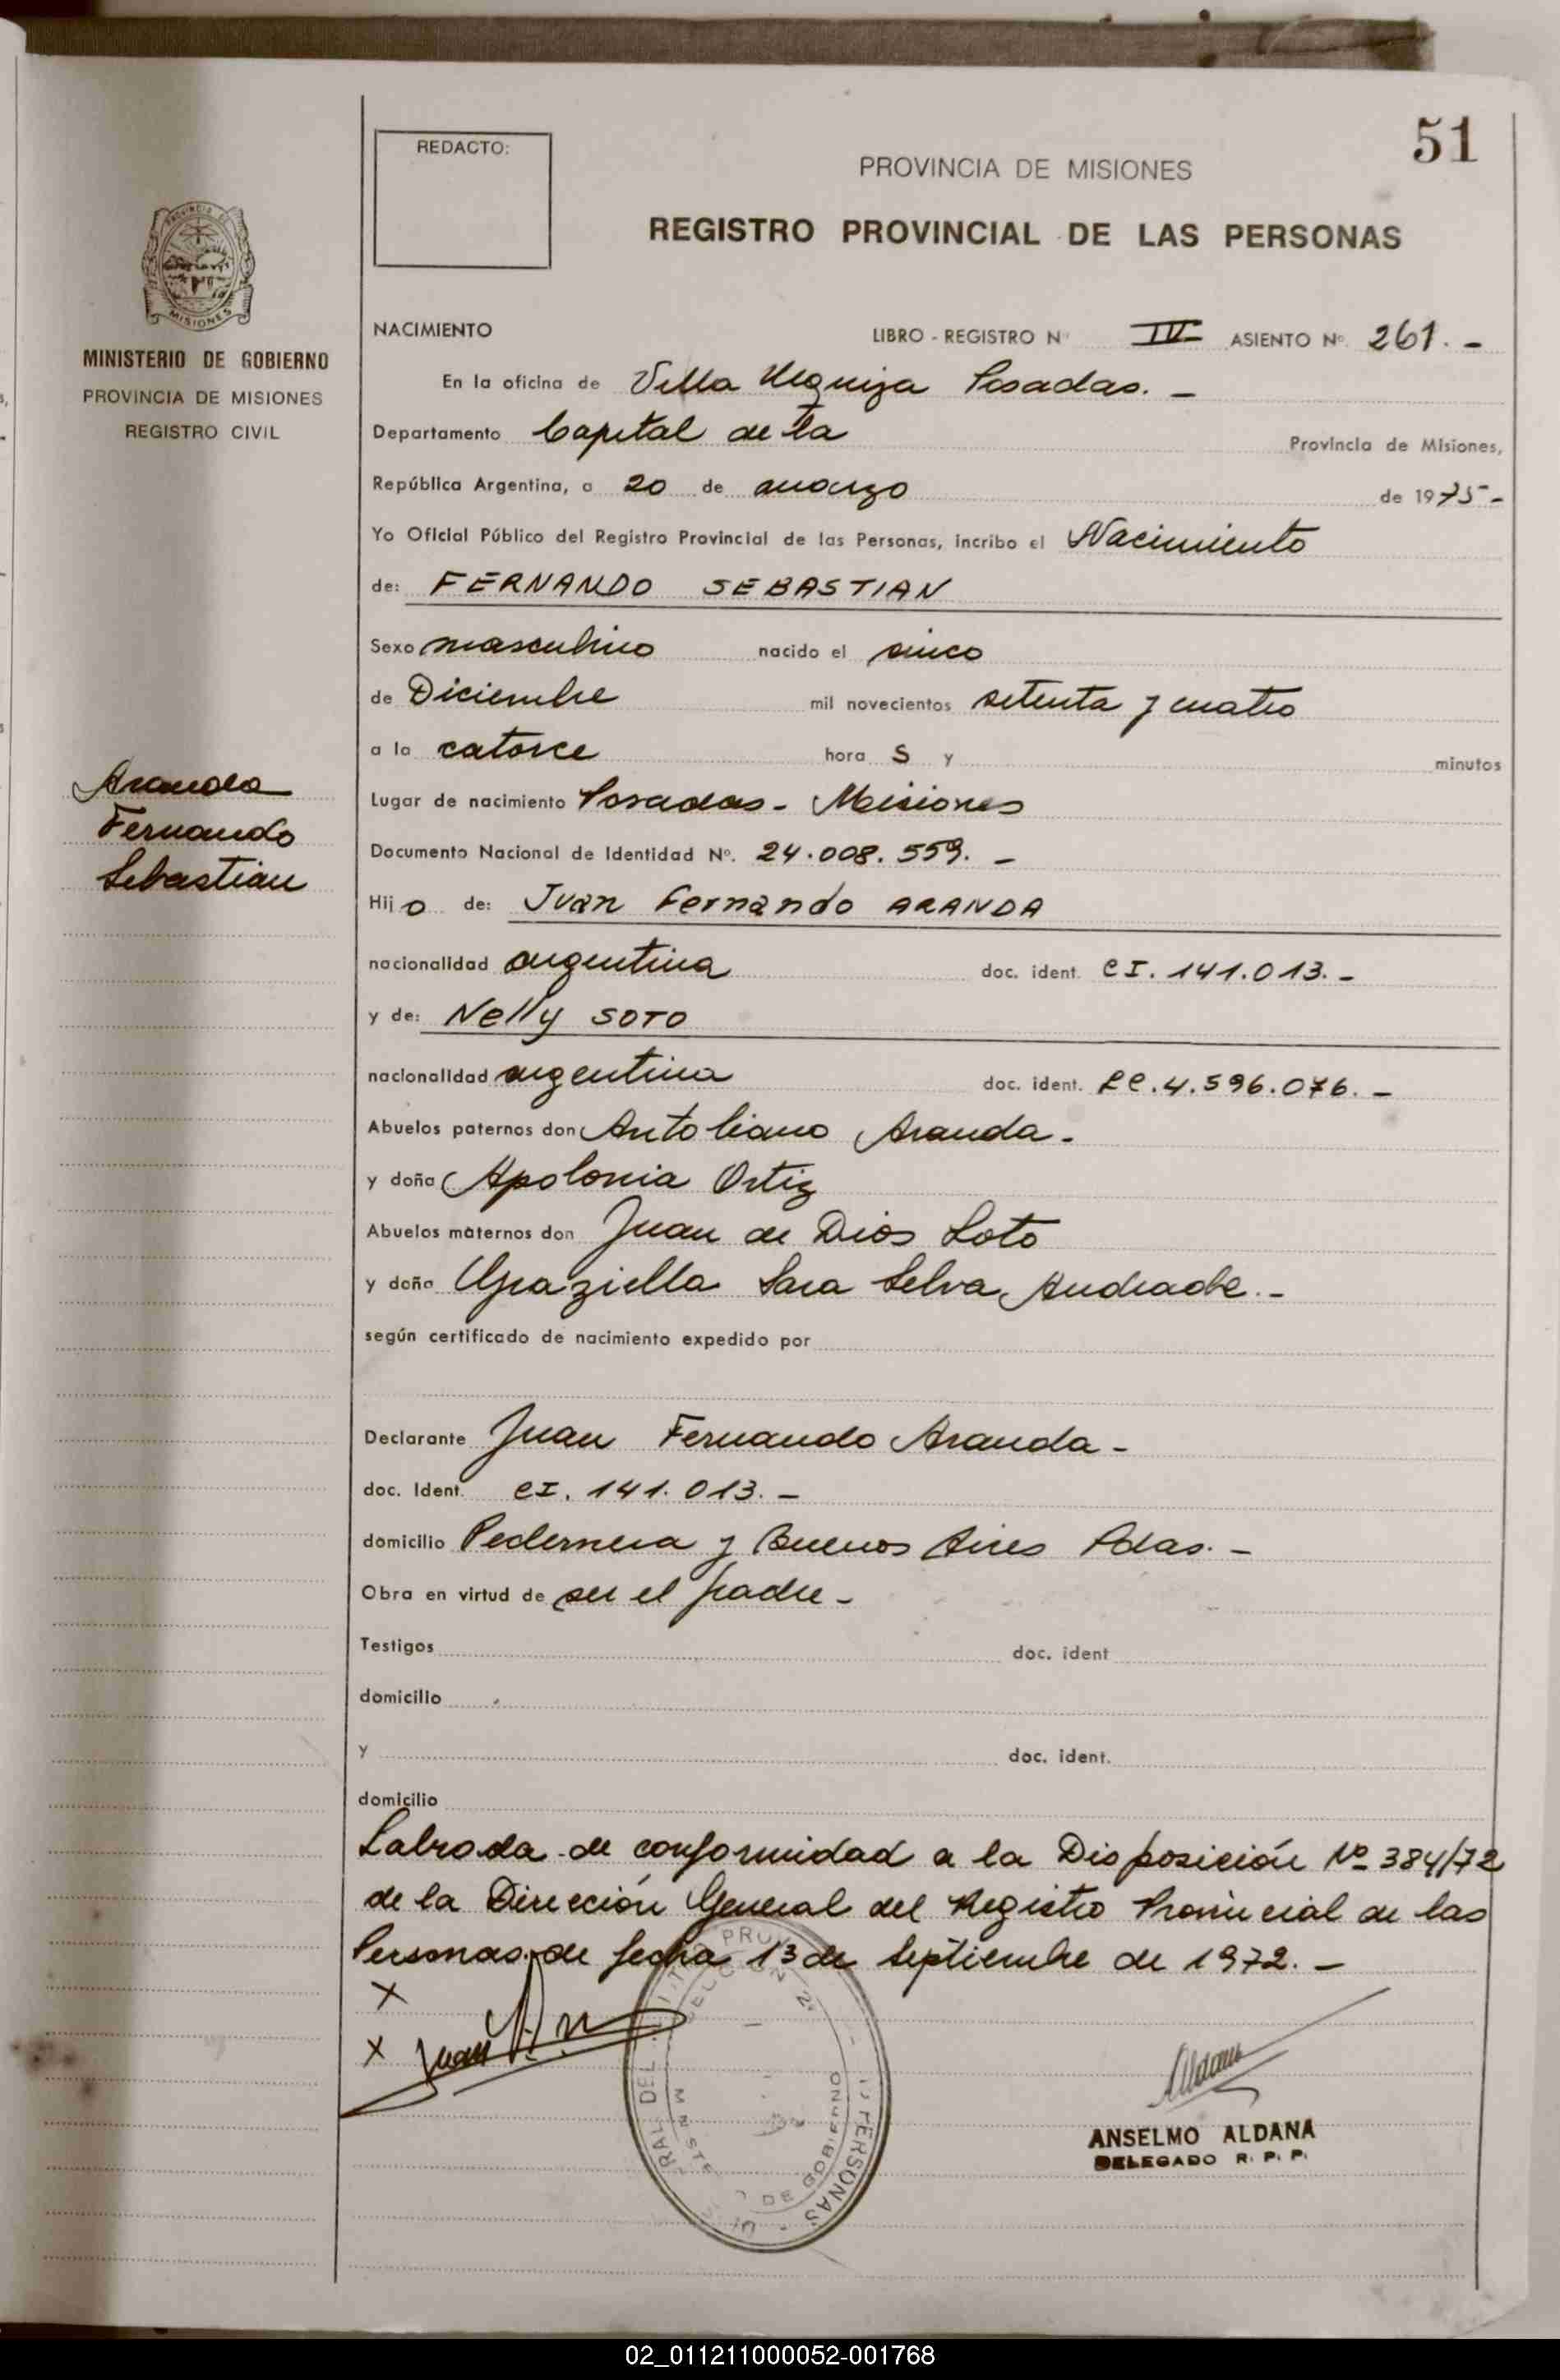 51
REDACTO:
PROVINCIA DE MISIONES
REGISTRO PROVINCIAL DE LAS PERSONAS
MISIONES
MINISTERIO DE GOBIERNO
PROVINCIA DE MISIONES
REGISTRO CIVIL
NACIMIENTO LIBRO - REGISTRO Nº IV ASIENTO Nº 261. -
En la oficina de Villa Urquiza Posadas. -
Departamento Capital de la Provincia de Misiones,
República Argentina, a 20 de marzo de 1975 -
Yo Oficial Público del Registro Provincial de las Personas, incribo el Nacimiento
de: FERNANDO SEBASTIAN
Sexo masculino nacido el cinco
de Diciembre mil novecientos setenta y cuatro
a la catorce hora s y minutos
Aranda
Fernando
Sebastian
Lugar de nacimiento Posadas - Misiones
Documento Nacional de Identidad Nº. 24.008.559. -
Hijo de: Juan Fernando ARANDA
nacionalidad argentina doc. ident. CI. 141.013. -
y de: Nelly SOTO
nacionalidad argentina doc. ident. LC. 4.596.076. -
Abuelos paternos don Antoliano Aranda -
y doña Apolonia Ortiz
Abuelos maternos don Juan de Dios Soto
y doña Graziella Sara Selva Andrade. -
según certificado de nacimiento expedido por
Declarante Juan Fernando Aranda -
doc. Ident. CI. 141.013. -
domicilio Pedernera y Buenos Aires Pdas. -
Obra en virtud de ser el padre -
Testigos doc. ident
domicilio
y doc. ident.
domicilio
Labrada de conformidad a la Disposición Nº 384/72
de la Dirección General del Registro Provincial de las
Personas de fecha 13 de Septiembre de 1972. -
X
X Juan
Aldana
DE GOBIERNO
PERSONAS
ANSELMO ALDANA
DELEGADO R. P. P.
02_011211000052-001768